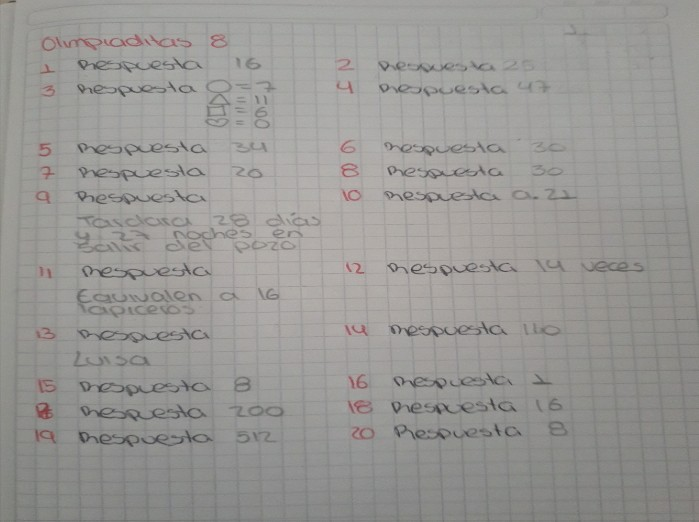 Olimpiaditas 8
1 Respuesta 16 2 Respuesta 25
3 Respuesta ○=7 4 Respuesta 47
△=11
□=6
♡=8
5 Respuesta 34 6 Respuesta 30
7 Respuesta 20 8 Respuesta 30
9 Respuesta 10 Respuesta a. 21
Tardara 28 días
y 27 noches en
salir del pozo
11 Respuesta 12 Respuesta 14 veces
Equivalen a 16
lapiceros
13 Respuesta 14 Respuesta 110
Luisa
15 Respuesta 8 16 Respuesta 1
Respuesta 200 18 Respuesta 16
19 Respuesta 512 20 Respuesta 8